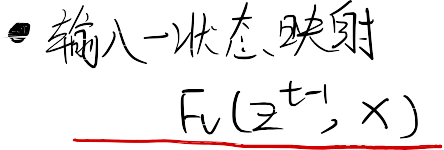 • 输入一状态、映射
Fv(z^{t-1}, x)